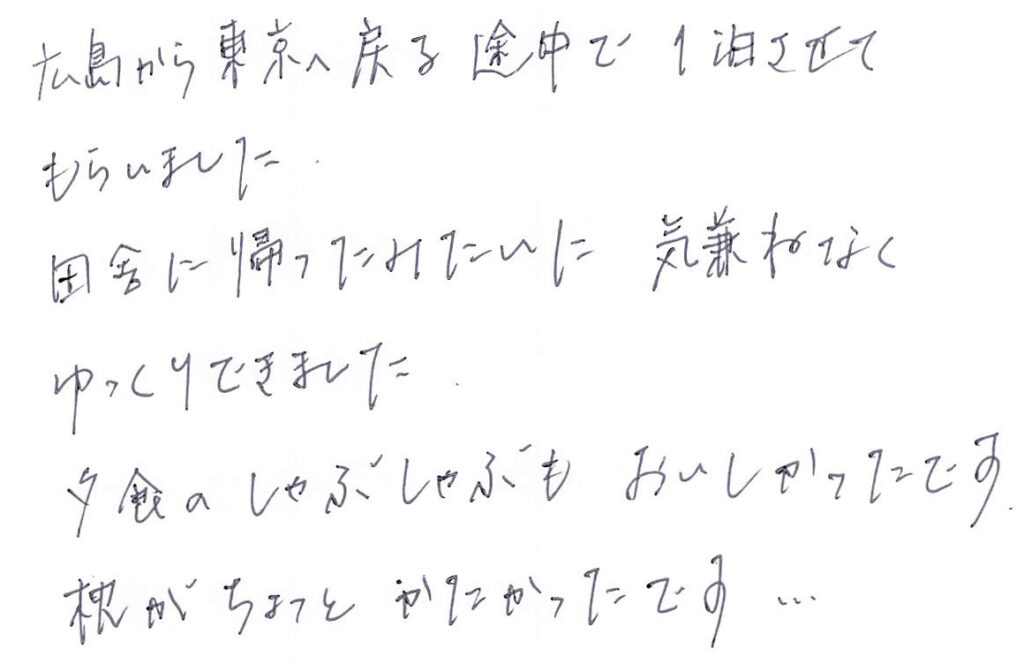 広島から東京へ戻る途中で 1泊させて
もらいました.
田舎に帰ったみたいに 気兼ねなく
ゆっくりできました.
夕食のしゃぶしゃぶも おいしかったです.
枕がちょっと かたかったです …